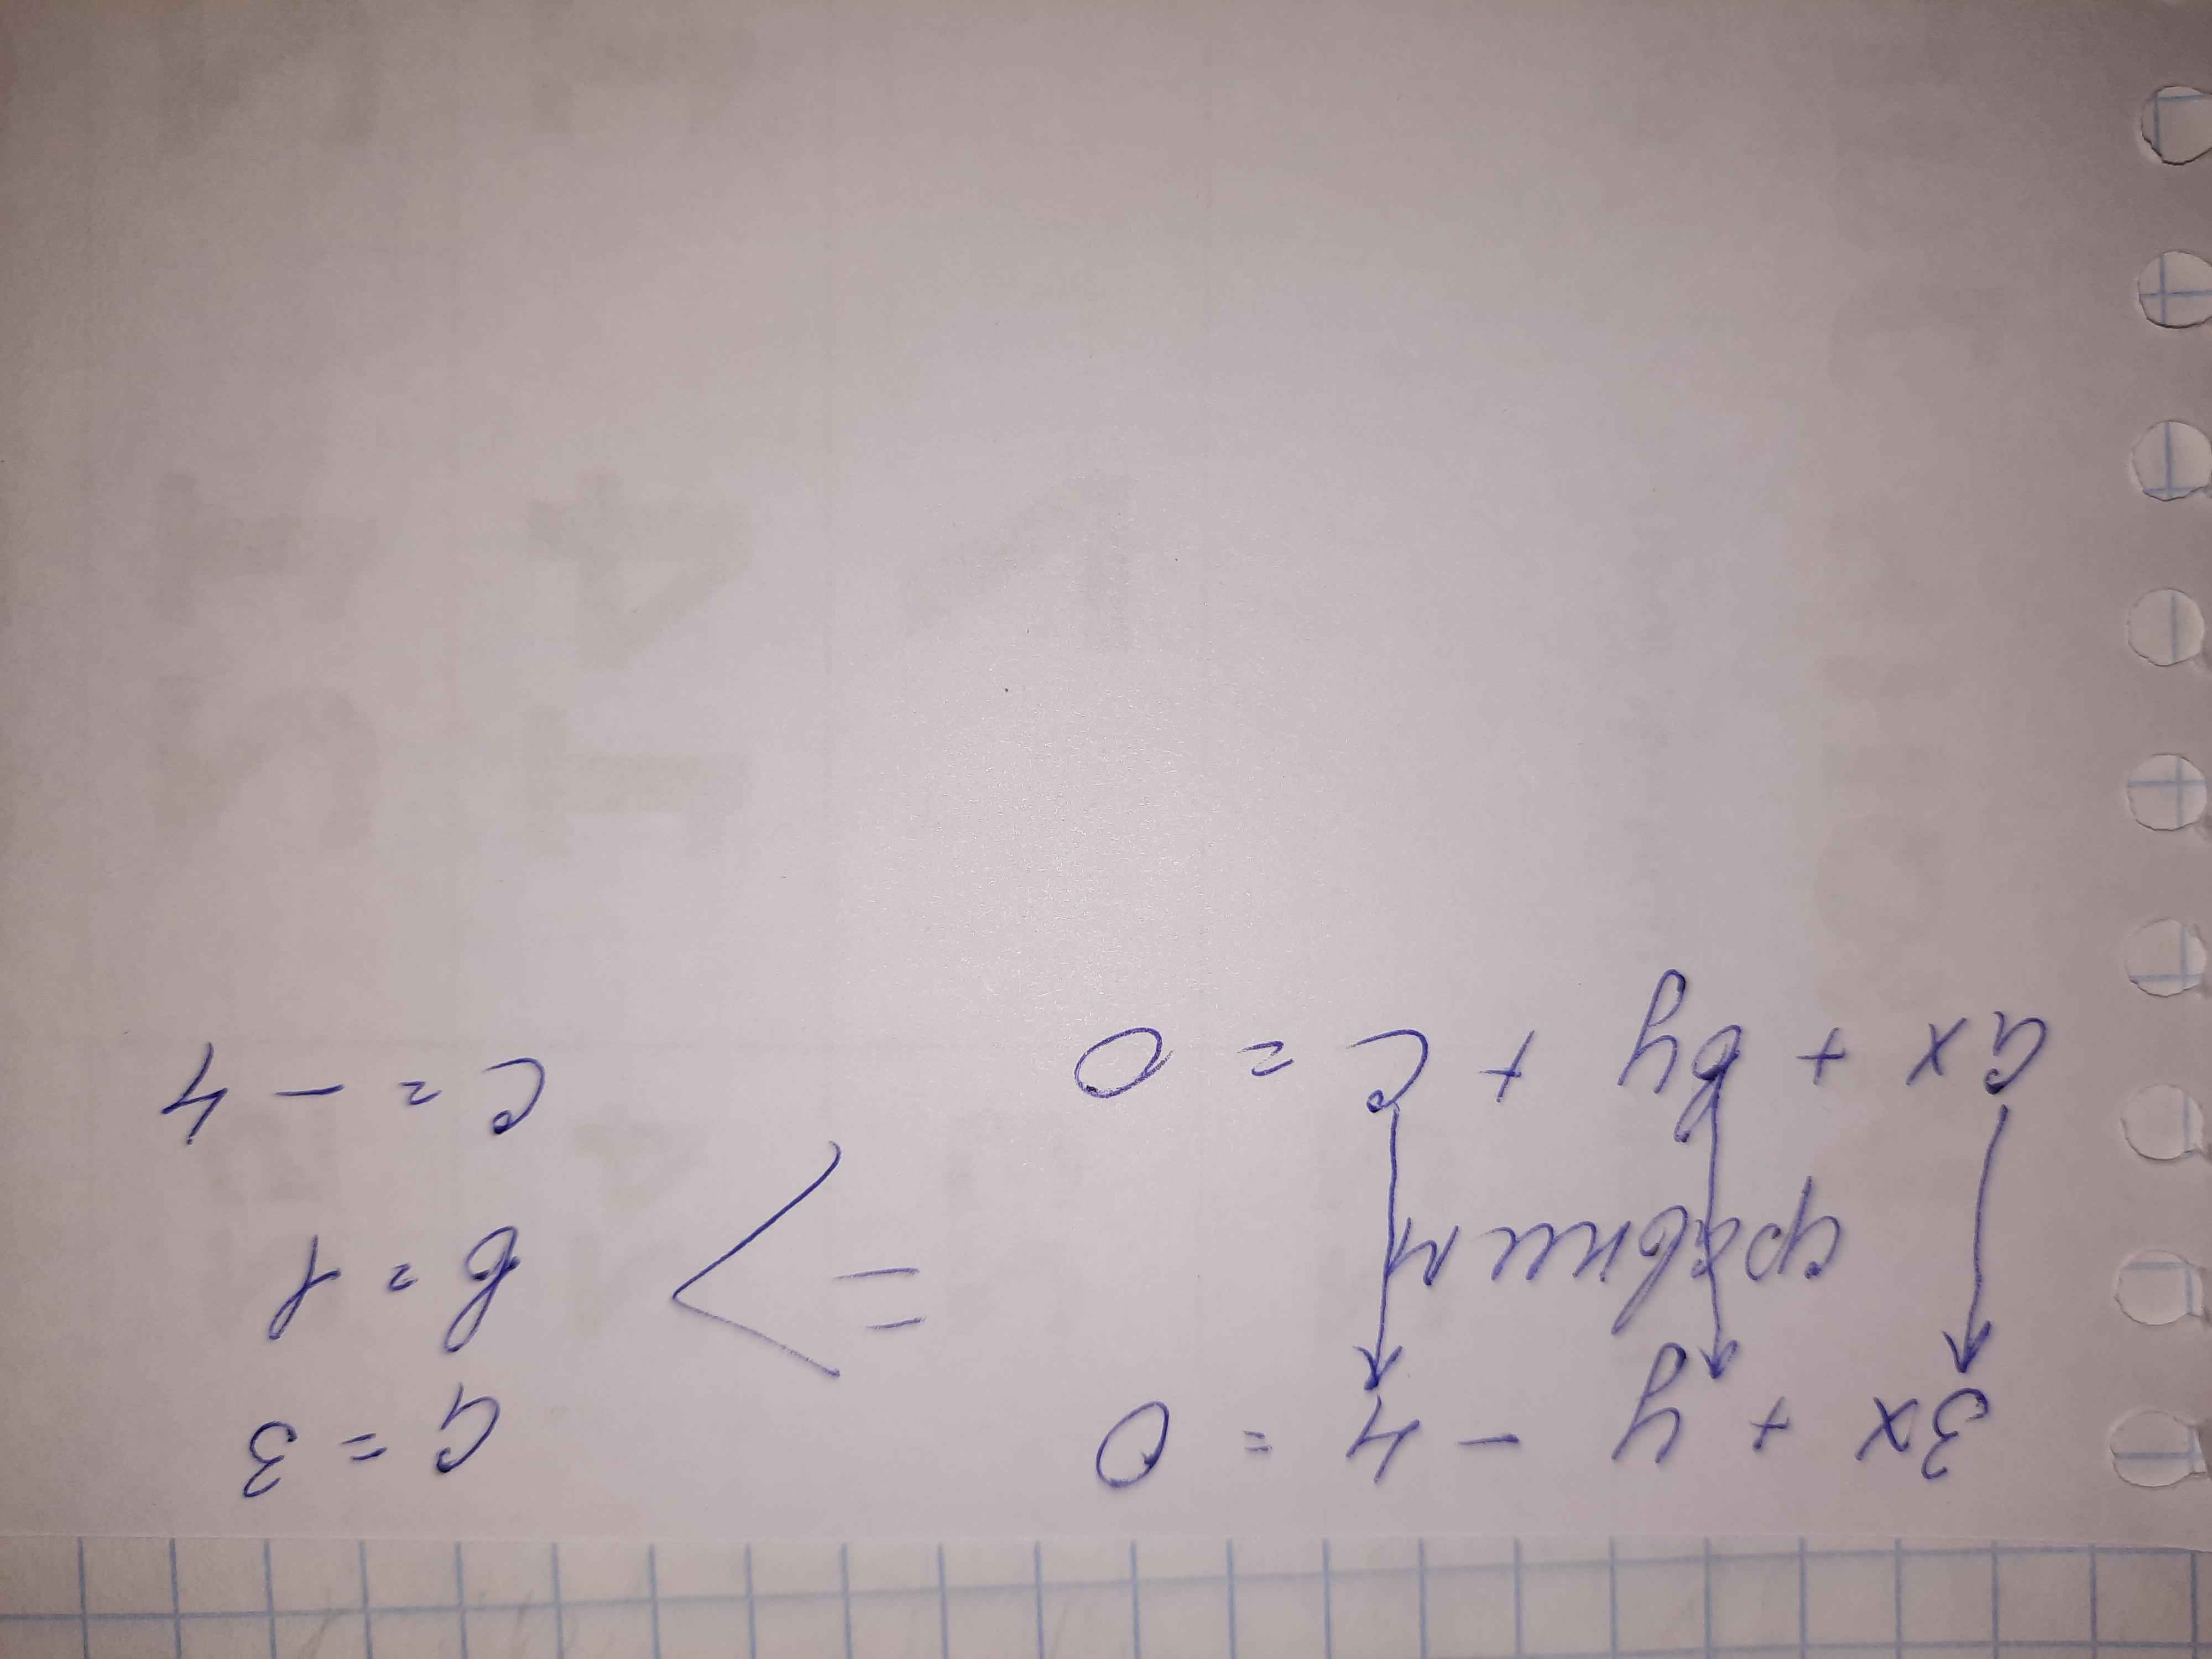 3x + y - 4 = 0
сравним
ax + by + c = 0
=>
a = 3
b = 1
c = -4